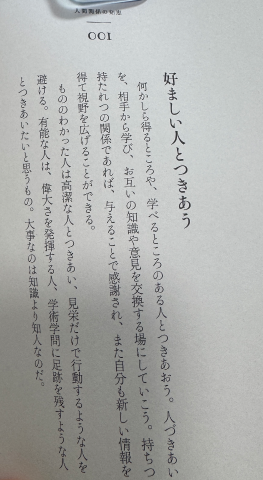 人間関係の知恵
001
好ましい人とつきあう
何かしら得るところや、学べるところのある人とつきあおう。人づきあい
を、相手から学び、お互いの知識や意見を交換する場にしていこう。持ちつ
持たれつの関係であれば、与えることで感謝され、また自分も新しい情報を
得て視野を広げることができる。
もののわかった人は高潔な人とつきあい、見栄だけで行動するような人を
避ける。有能な人は、偉大さを発揮する人、学術学問に足跡を残すような人
とつきあいたいと思うもの。大事なのは知識より知人なのだ。